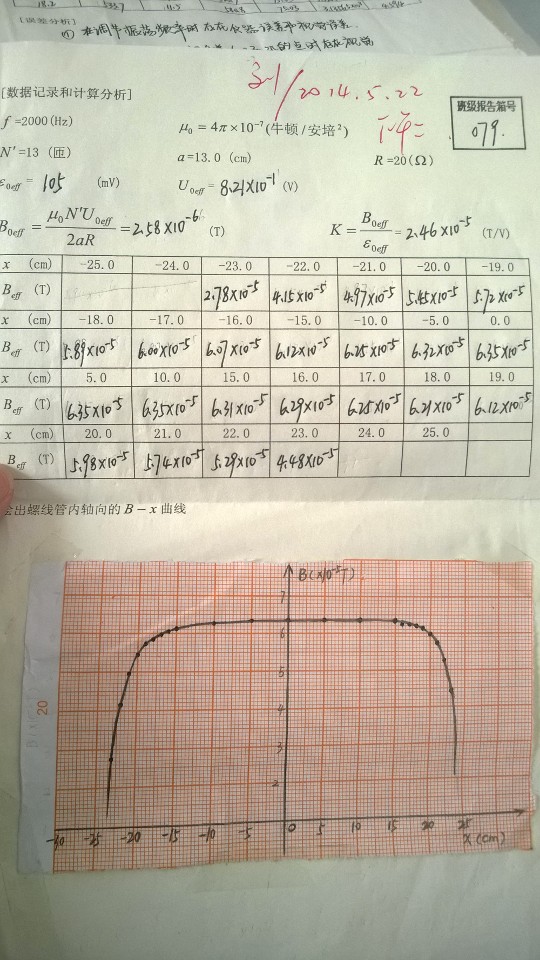 18.2
[误差分析]
① 在调节振荡频率时存在仪器误差和视觉误差
[数据记录和计算分析]
2014.5.22
班级报告箱号
079.
f =2000(Hz)
μ₀ = 4π×10⁻⁷(牛顿/安培²)
N' =13 (匝)
a=13.0 (cm)
R =20(Ω)
ε0eff = 105 (mV)
U0eff = 8.21×10⁻¹ (V)
B0eff = μ₀N'U0eff / 2aR = 2.58×10⁻⁶ (T)
K = B0eff / ε0eff = 2.46×10⁻⁵ (T/V)
x (cm) -25.0 -24.0 -23.0 -22.0 -21.0 -20.0 -19.0
Beff (T) 2.78×10⁻⁵ 4.15×10⁻⁵ 4.97×10⁻⁵ 5.45×10⁻⁵ 5.72×10⁻⁵
x (cm) -18.0 -17.0 -16.0 -15.0 -10.0 -5.0 0.0
Beff (T) 5.89×10⁻⁵ 6.00×10⁻⁵ 6.07×10⁻⁵ 6.12×10⁻⁵ 6.25×10⁻⁵ 6.32×10⁻⁵ 6.35×10⁻⁵
x (cm) 5.0 10.0 15.0 16.0 17.0 18.0 19.0
Beff (T) 6.35×10⁻⁵ 6.35×10⁻⁵ 6.31×10⁻⁵ 6.29×10⁻⁵ 6.25×10⁻⁵ 6.21×10⁻⁵ 6.12×10⁻⁵
x (cm) 20.0 21.0 22.0 23.0 24.0 25.0
Beff (T) 5.98×10⁻⁵ 5.74×10⁻⁵ 5.29×10⁻⁵ 4.48×10⁻⁵
出螺线管内轴向的 B－x 曲线
B(×10⁻⁵T)
7
6
5
4
3
2
20
-30 -25 -20 -15 -10 -5 0 5 10 15 20 25
x (cm)